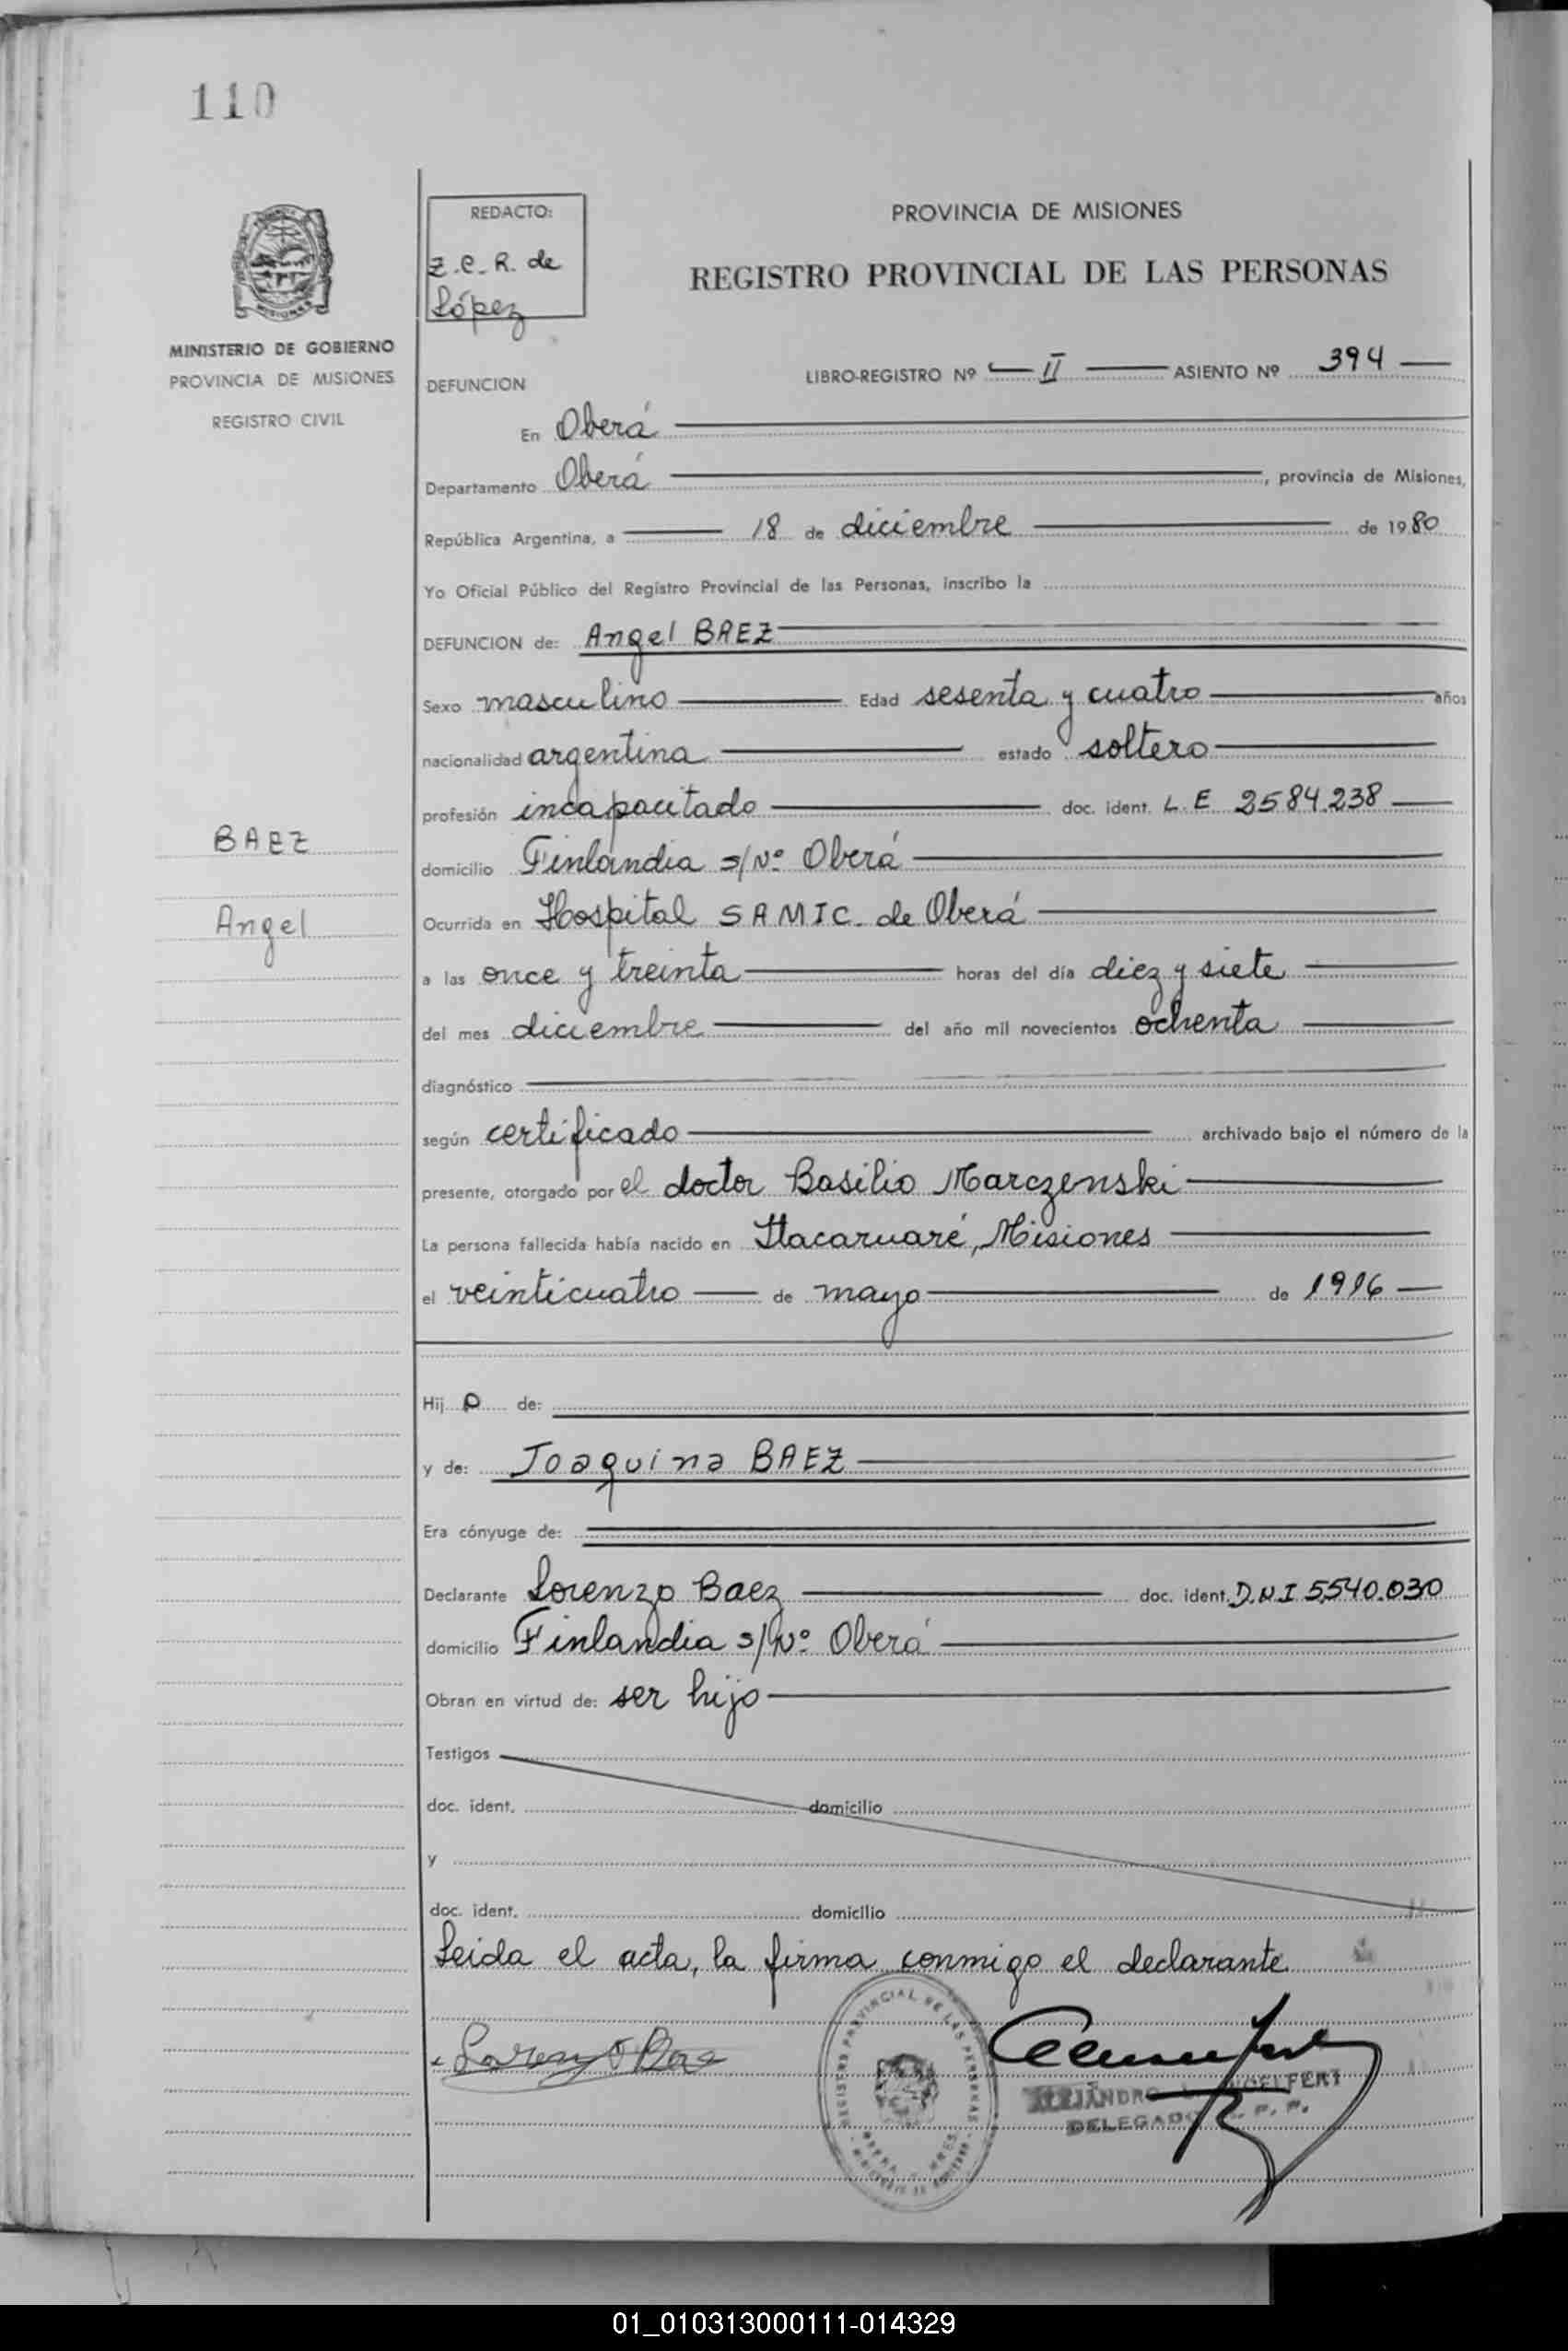 110
REDACTO:
Z.C.R. de
López
MINISTERIO DE GOBIERNO
PROVINCIA DE MISIONES
REGISTRO CIVIL
PROVINCIA DE MISIONES
REGISTRO PROVINCIAL DE LAS PERSONAS
DEFUNCION LIBRO-REGISTRO Nº II ASIENTO Nº 394
En Oberá
Departamento Oberá, provincia de Misiones,
República Argentina, a 18 de diciembre de 1980
Yo Oficial Público del Registro Provincial de las Personas, inscribo la
DEFUNCION de: Angel BAEZ
Sexo masculino Edad sesenta y cuatro años
nacionalidad argentina estado soltero
profesión incapacitado doc. ident. L.E 2584.238
BAEZ
domicilio Finlandia s/Nº Oberá
Angel
Ocurrida en Hospital SAMIC. de Oberá
a las once y treinta horas del día diez y siete
del mes diciembre del año mil novecientos ochenta
diagnóstico
según certificado archivado bajo el número de la
presente, otorgado por el doctor Basilio Marczenski
La persona fallecida había nacido en Itacaruaré, Misiones
el veinticuatro de mayo de 1916
Hij o de:
y de: Joaquina BAEZ
Era cónyuge de:
Declarante Lorenzo Baez doc. ident. D.N.I 5.540.030
domicilio Finlandia s/Nº Oberá
Obran en virtud de: ser hijo
Testigos
doc. ident. domicilio
y
doc. ident. domicilio
Leida el acta, la firma conmigo el declarante
REGISTRO PROVINCIAL DE LAS PERSONAS
ALEJANDRO
DELEGADO
01_010313000111-014329